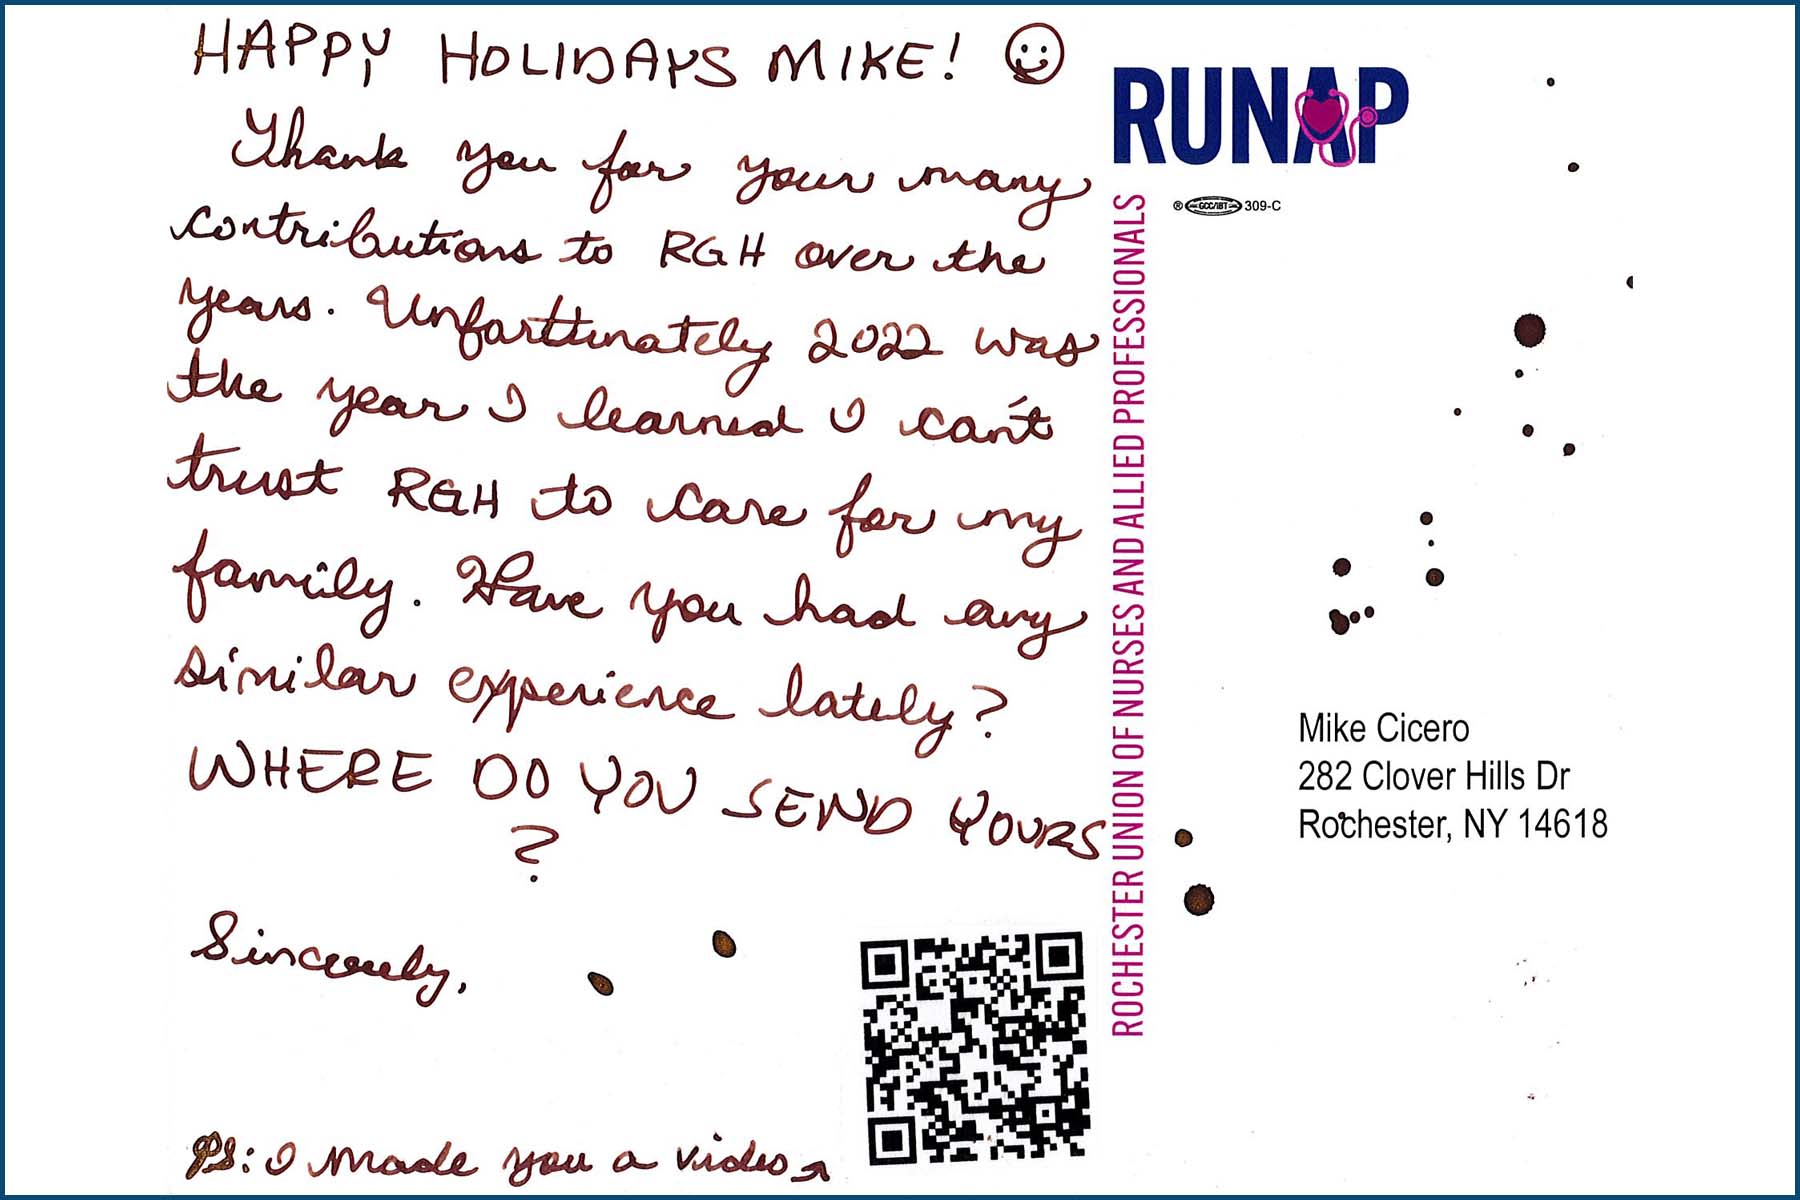 HAPPY HOLIDAYS MIKE!
Thank you for your many
contributions to RGH over the
years. Unforttunately 2022 was
the year I learned I can't
trust RGH to care for my
family. Have you had any
similar experience lately?
WHERE DO YOU SEND YOURS
?
Sincerely,
PS: I made you a video
RUNAP
® GCC/IBT 309-C
ROCHESTER UNION OF NURSES AND ALLIED PROFESSIONALS
Mike Cicero
282 Clover Hills Dr
Rochester, NY 14618